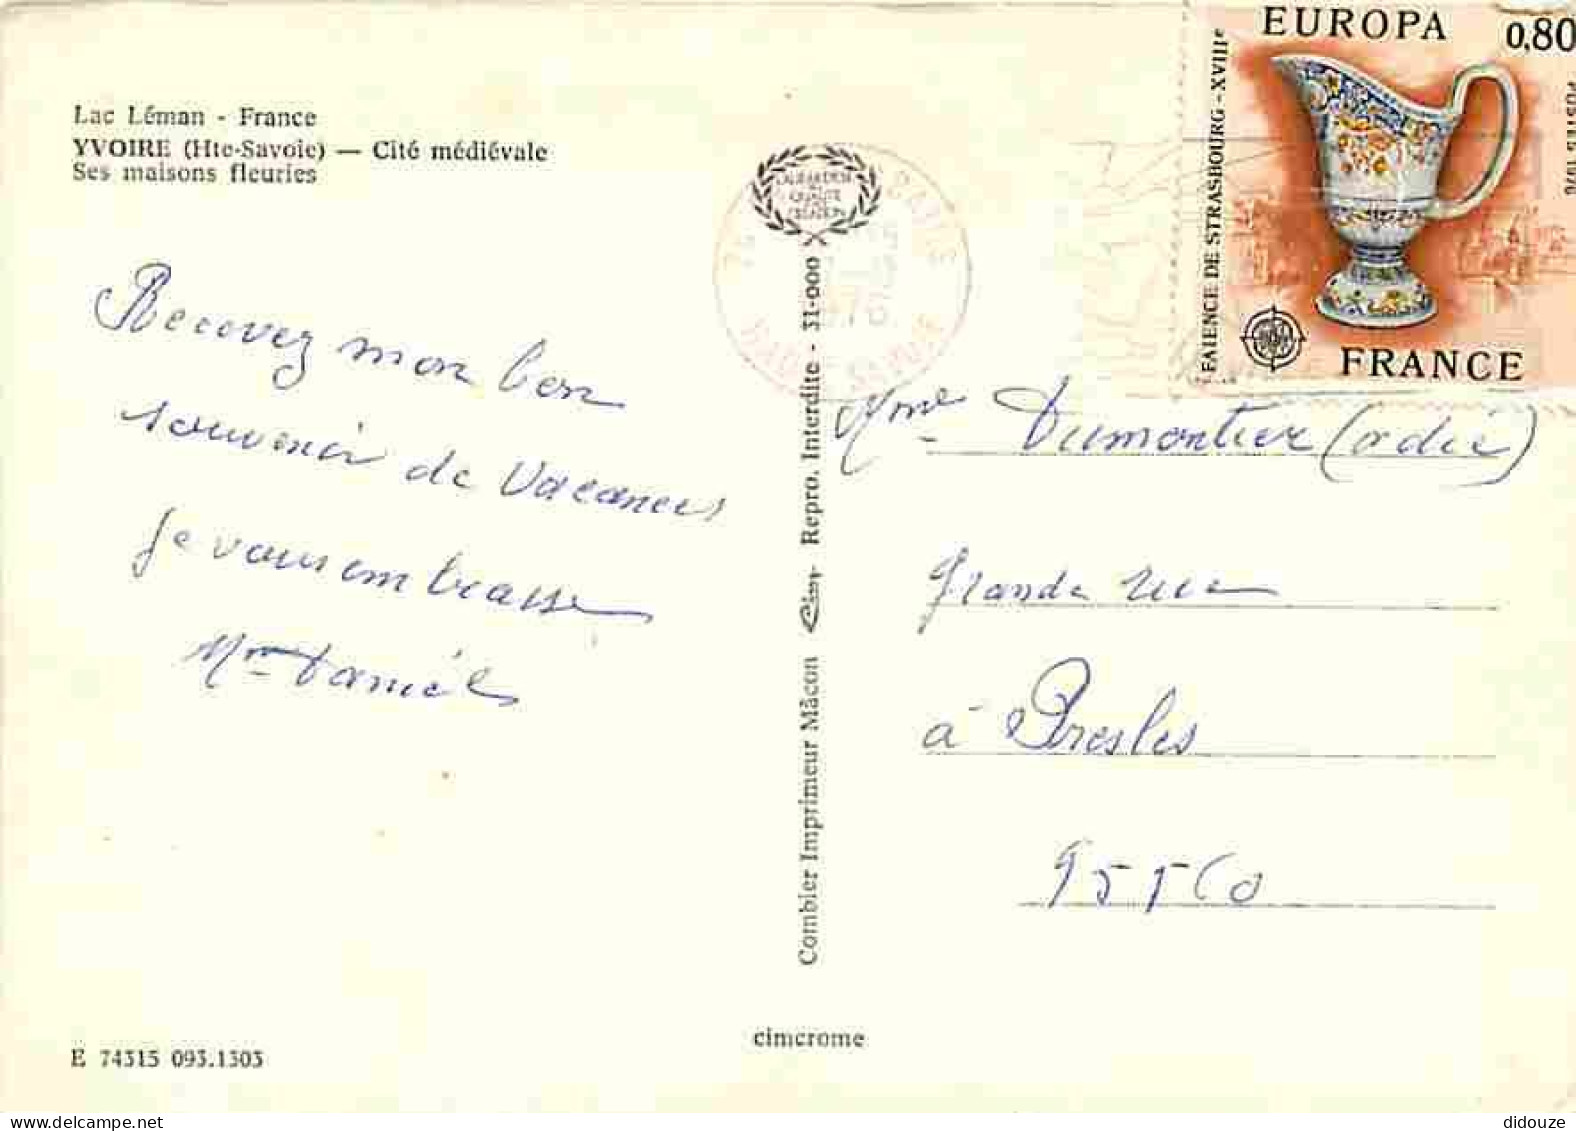 EUROPA
0,80
FAIENCE DE STRASBOURG - XVIIIe
POSTES 1976
FRANCE
Lac Léman - France
YVOIRE (Hte-Savoie) — Cité médiévale
Ses maisons fleuries
Recevez mon bon
souvenir de Vacances
Je vous embrasse
Mme Daniel
LABEL
QUALITE
CREATION
Combier Imprimeur Mâcon Cim Repro. Interdite - 31-000
Mme Dumontier
Grande rue
à Presles
95560
cimcrome
E 74315 093.1303
didouze